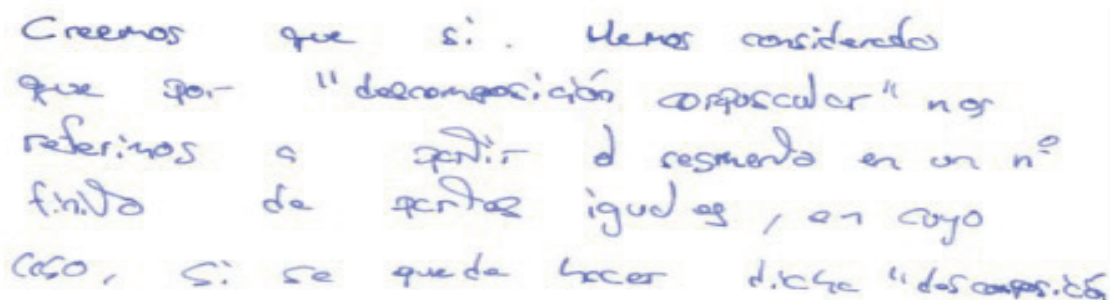 Creemos que si. Hemos considerado
que por "descomposición corpuscular" nos
referimos a partir el segmento en un nº
finito de partes iguales, en cuyo
caso, si se puede hacer dicha "descomposició